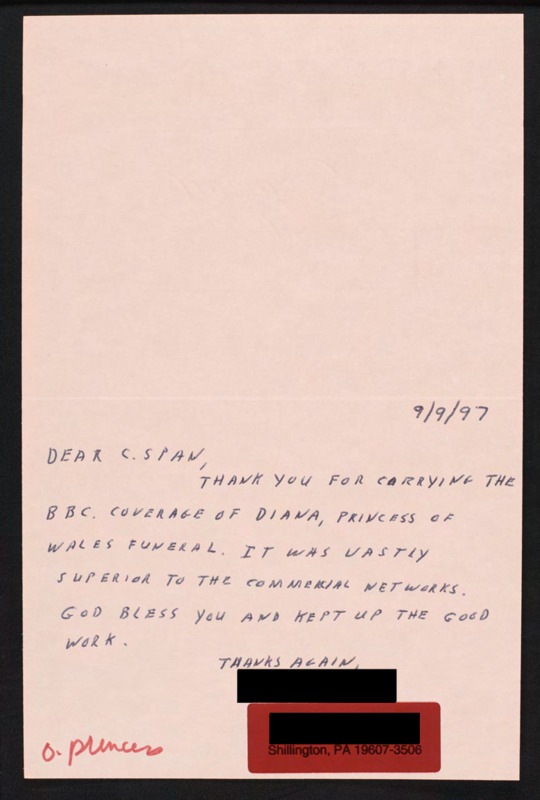 9/9/97
DEAR C. SPAN,
THANK YOU FOR CARRYING THE
BBC. COVERAGE OF DIANA, PRINCESS OF
WALES FUNERAL. IT WAS VASTLY
SUPERIOR TO THE COMMERIAL NETWORKS.
GOD BLESS YOU AND KEPT UP THE GOOD
WORK.
THANKS AGAIN,
Shillington, PA 19607-3506
o. princess